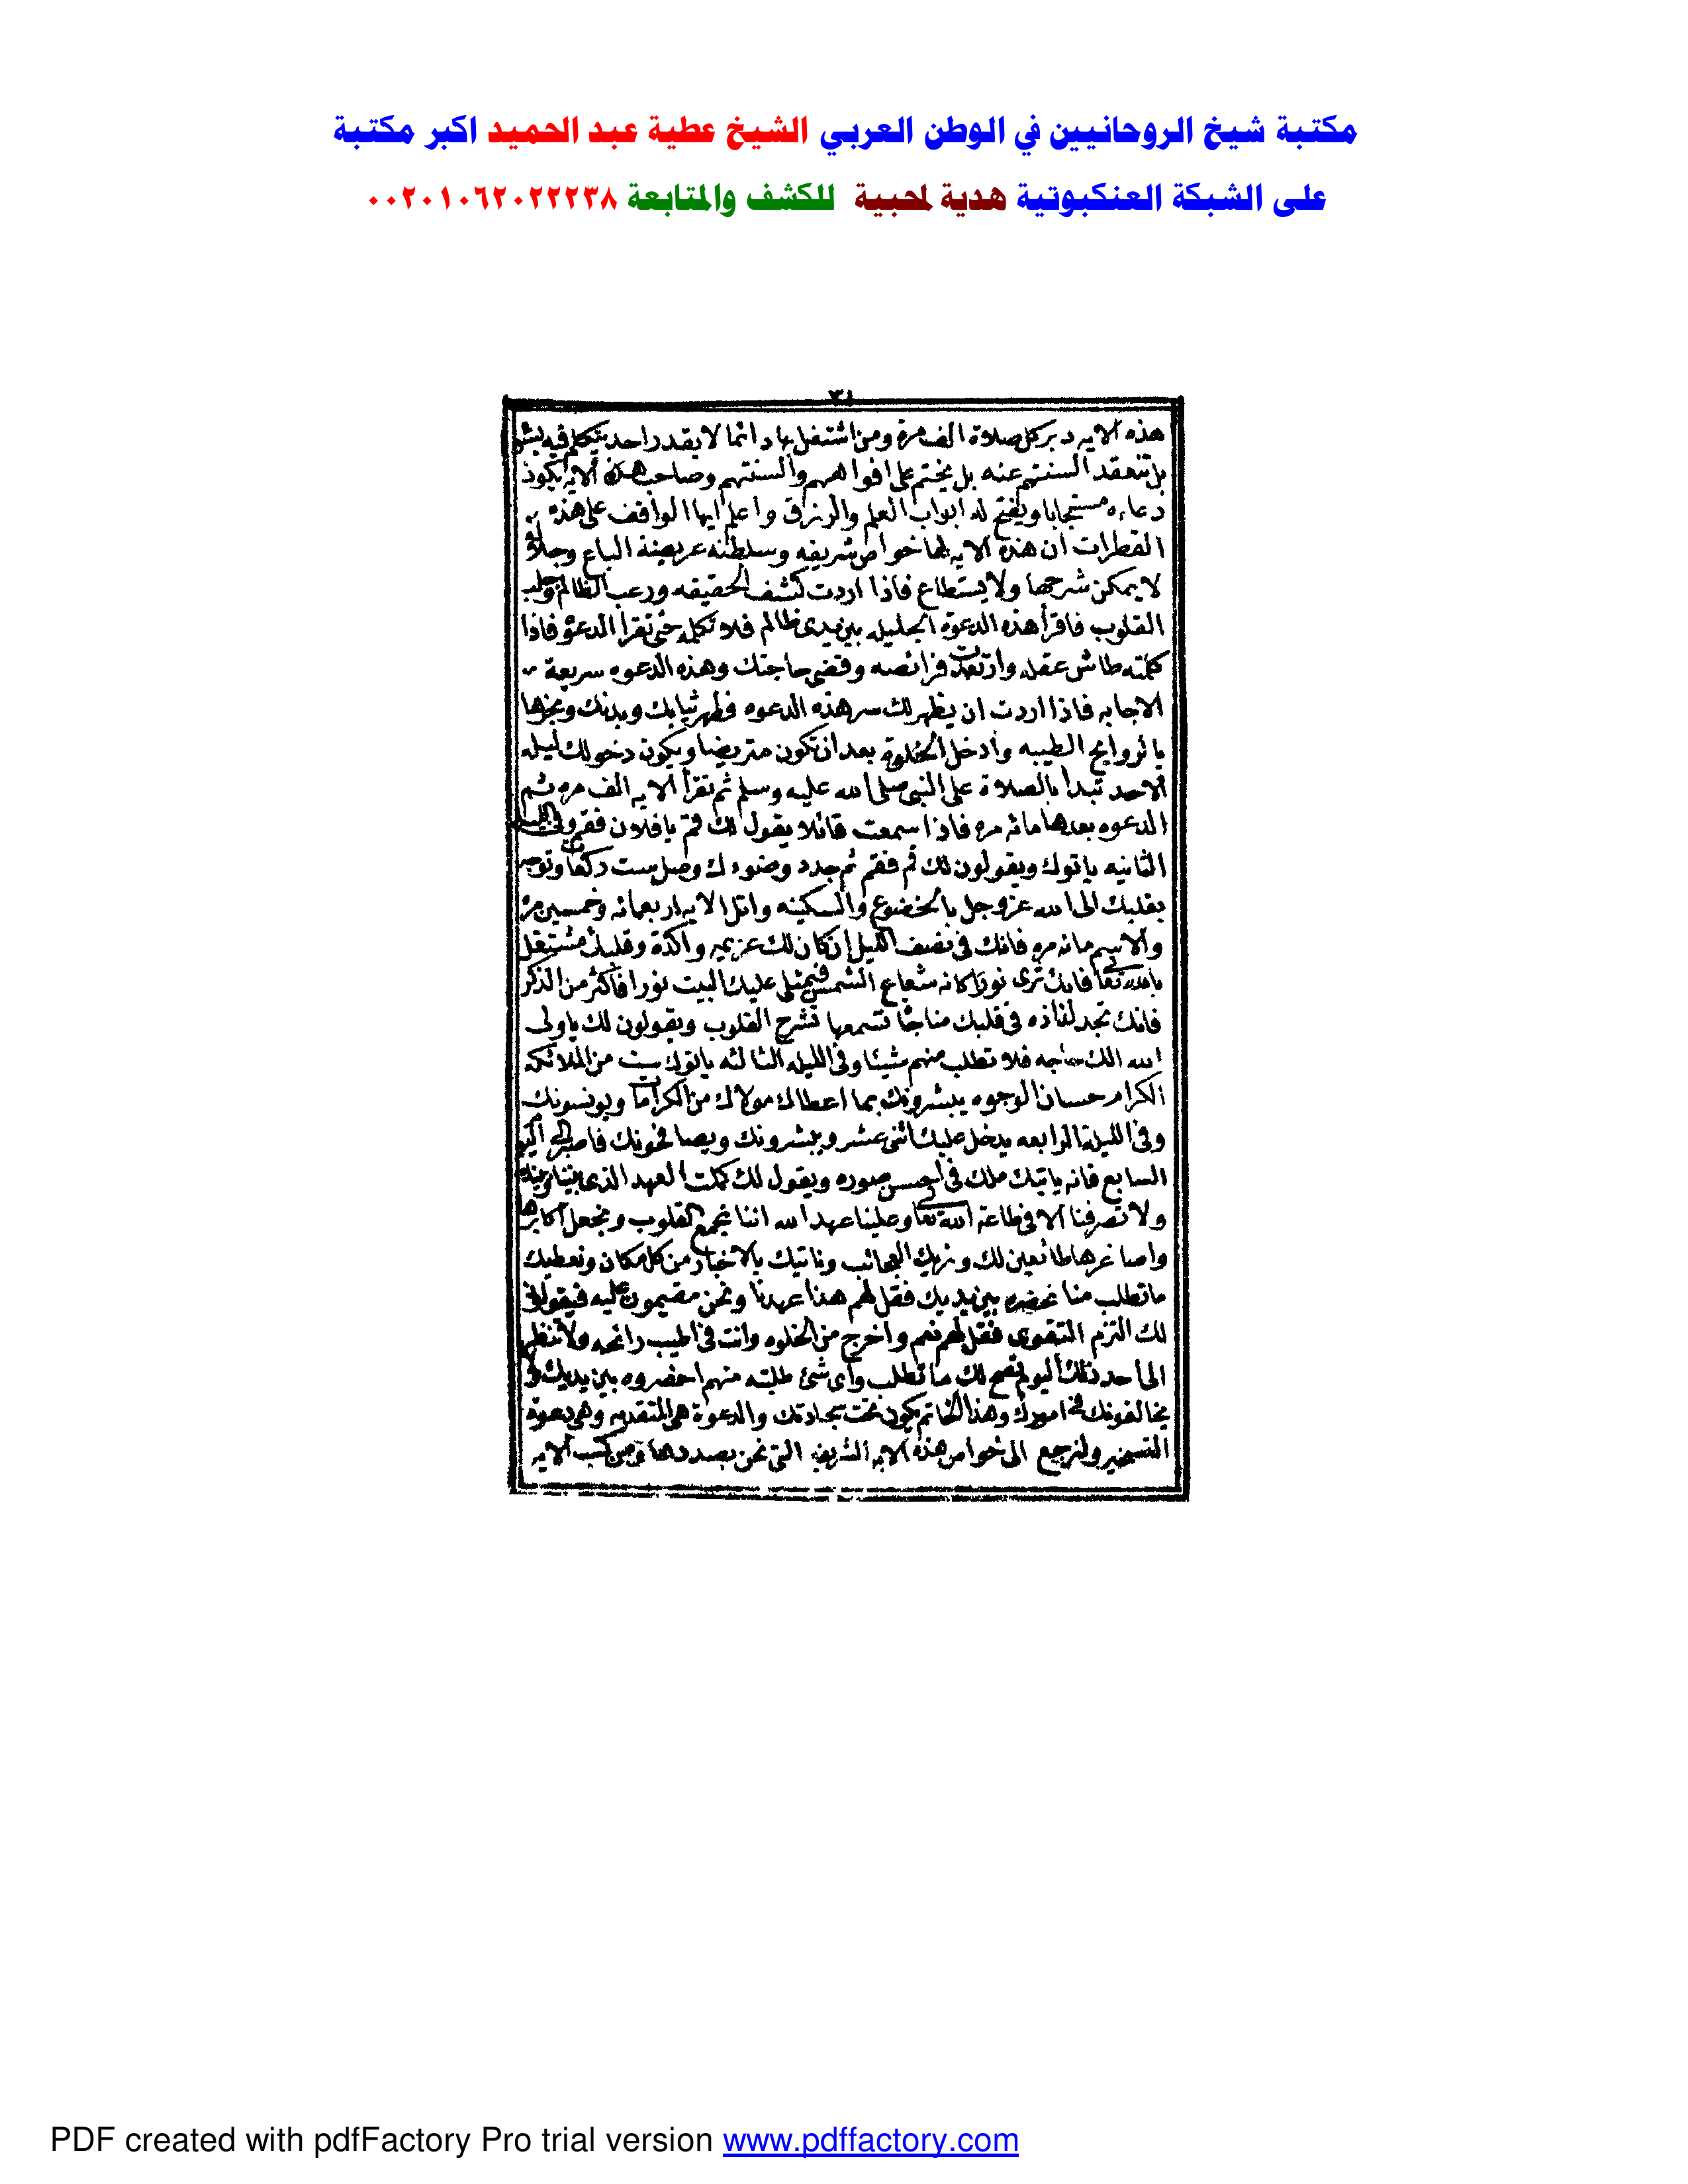 مكتبة شيخ الروحانيين في الوطن العربي الشيخ عطية عبد الحميد اكبر مكتبة
على الشبكة العنكبوتية هدية لمحبية للكشف والمتابعة ٠٠٢٠١٠٦٢٠٢٢٢٣٨
٣١
هذه الايه دبر كل صلاة الف مرة ومن اشتغل بها دائما لا يقدر احد يتكلم فيه بشر
بل تنعقد السنتهم عنه بل يختم على افواههم والسنتهم وصاحب هذه الايه يكون
دعاءه مستجابا ويفتح له ابواب العلم والرزق واعلم ايها الواقف على هذه
القطرات ان هذه الايه لها خواص شريفه وسلطنه عريضة الباع وجلالة
لا يمكن شرحها ولا يستطاع فاذا اردت كشف الحقيقه ورعب الظالم وجلب
القلوب فاقرأ هذه الدعوة الجليله بين يدى ظالم فلا تكلمه حتى تقرا الدعوة فاذا
كلمته طاش عقله وارتعدت فرائصه وقضى حاجتك وهذه الدعوه سريعة
الاجابه فاذا اردت ان يظهر لك سر هذه الدعوه فطهر ثيابك وبدنك وبخرها
بالروايح الطيبه وادخل الخلوة بعد ان تكون متريضا ويكون دخولك ليله
الاحد تبدا بالصلاة على النبى صلى الله عليه وسلم ثم تقرأ الايه الف مره ثم
الدعوه بعدها مائه مره فاذا سمعت قائلا يقول لك قم يا فلان فقم وفى الليله
الثانيه ياتوك ويقولون لك قم فقم ثم جدد وضوءك وصل ست ركعات وتوجه
بقلبك الى الله عز وجل بالخضوع والسكينه واتل الايه اربعمائه وخمسين مرة
والاسم مائه مره فانك فى نصف الليل ان كان لك عزيمه واكدة وقلبك مشتغل
بالله تعا فانك ترى نورا كانه شعاع الشمس فيمتلى عليك البيت نورا فاكثر من الذكر
فانك تجد لذاذه فى قلبك مناجاة تسمعها تشرح القلوب ويقولون لك يا ولى
الله الك حاجه فلا تطلب منهم شيئا وفى الليله الثالثه ياتوك ست من الملائكه
الكرام حسان الوجوه يبشرونك بما اعطاك مولاك من الكرامات ويونسونك
وفى الليلة الرابعه يدخل عليك اثنى عشر ويبشرونك ويصافحونك فاصبر الى اليوم
السابع فانه ياتيك ملك فى احسن صوره ويقول لك كملت العهد الذى بيننا وبينك
ولا تصرفنا الا فى طاعة الله تعا وعلينا عهد الله اننا نجمع القلوب ونجعل اكابرها
واصاغرها طائعين لك ونريك العجائب وناتيك بالاخبار من كل مكان ونعطيك
ما تطلب منا نحضره بين يديك فقل لهم هذا عهدنا ونحن مقيمون عليه فيقولون
لك التزم التقوى فقل لهم نعم واخرج من الخلوه وانت فى اطيب رائحه ولا تنظر
الى احد ذلك اليوم يقع لك ما تطلب واى شئ طلبته منهم احضروه بين يديك ولا
يخالفونك فى امورك وهذا الخاتم يكون تحت سجادتك والدعوة هى المتقدمه وهى دعوة
التسخير ولنرجع الى خواص هذه الايه الشريفه التى نحن بصددها ومن كتب الايه
PDF created with pdfFactory Pro trial version www.pdffactory.com